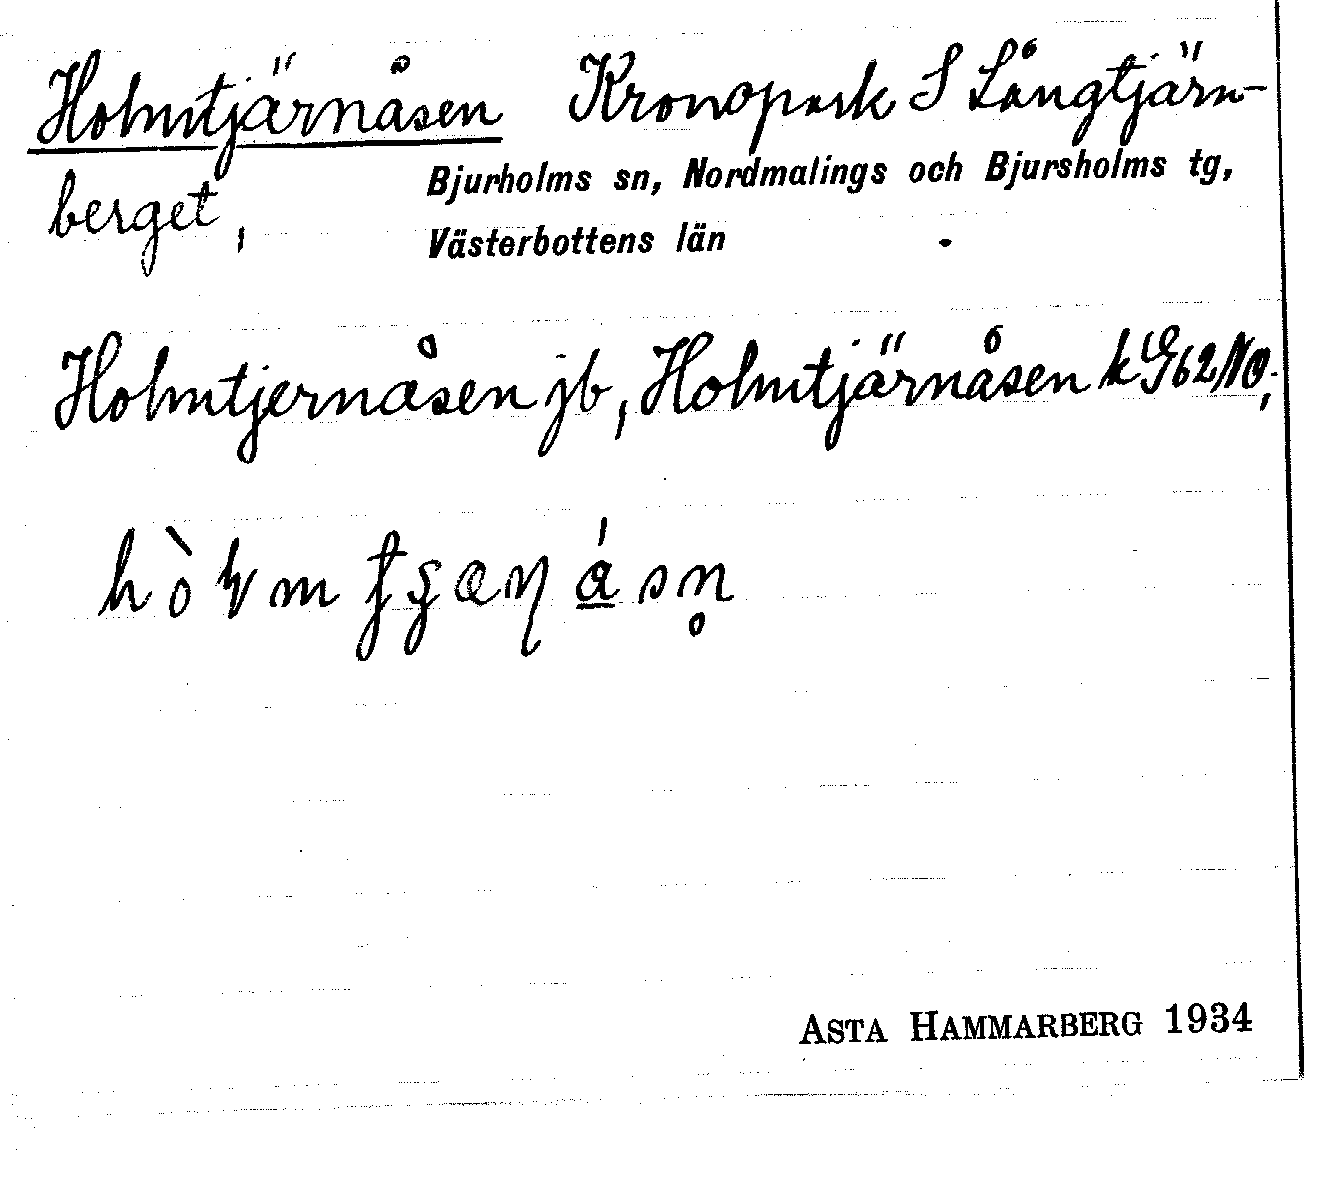 Holmtjärnåsen Kronopark S Långtjärn-
berget, Bjurholms sn, Nordmalings och Bjursholms tg,
Västerbottens län
Holmtjernåsen jb, Holmtjärnåsen k G62NO,
ASTA HAMMARBERG 1934